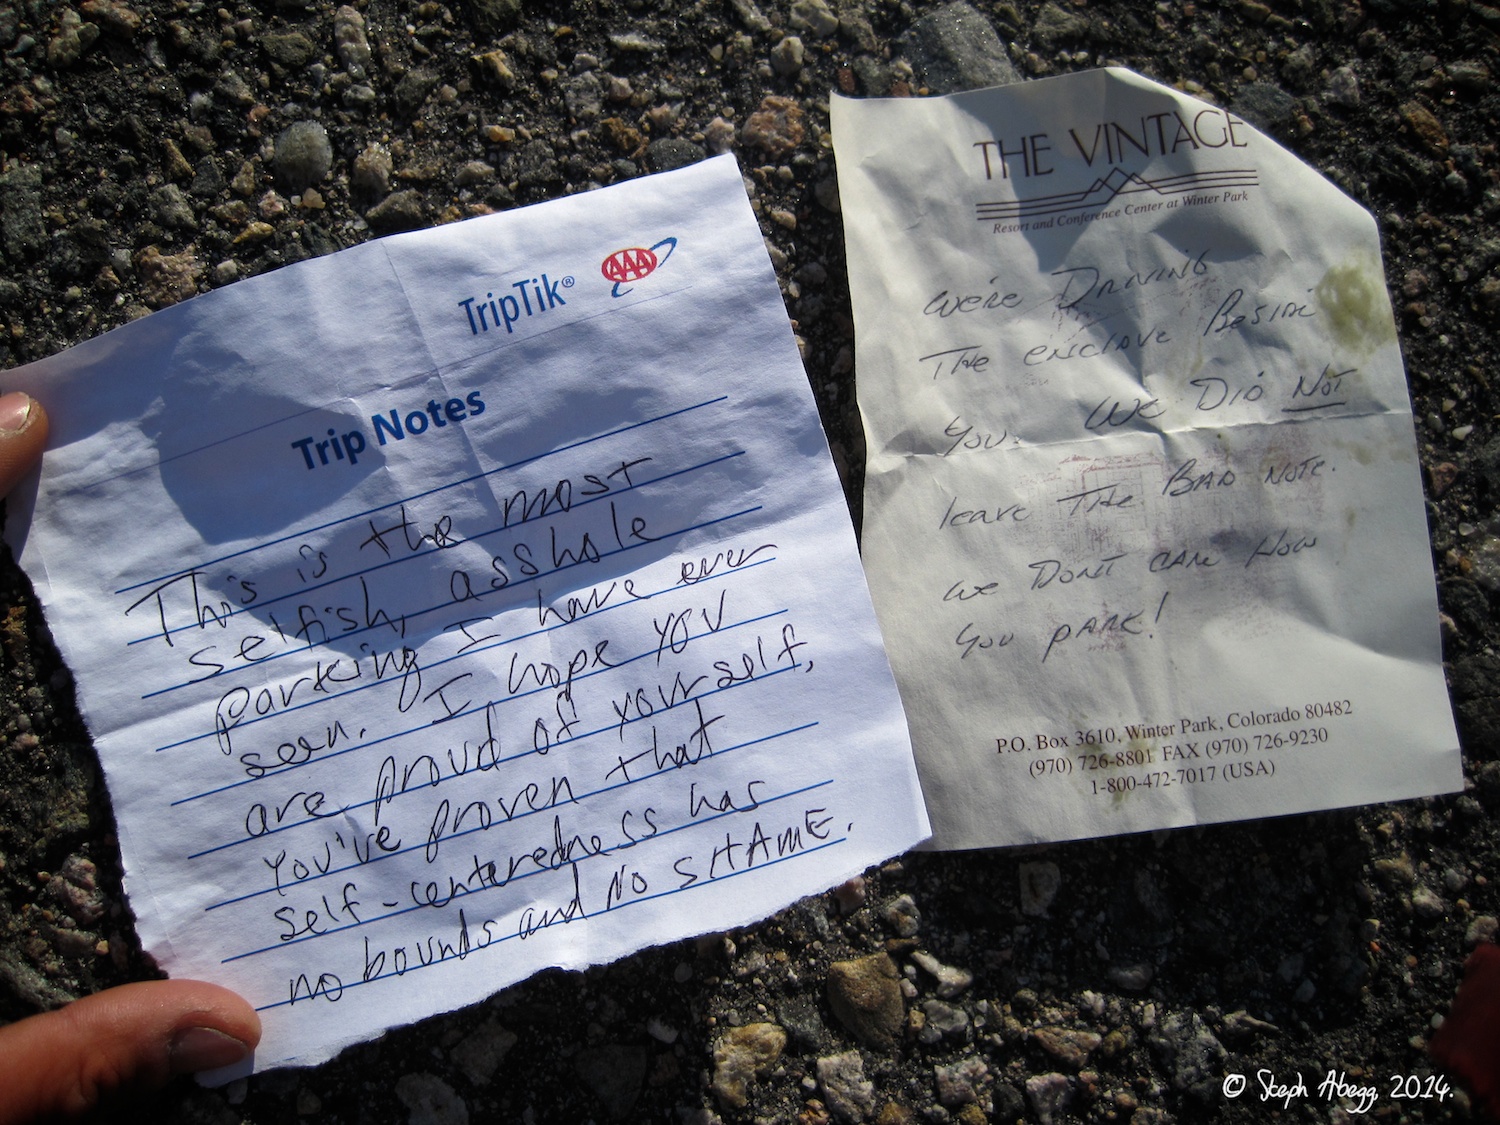 TripTik® AAA
Trip Notes
This is the most
selfish, asshole
parking I have ever
seen. I hope you
are proud of yourself,
You've proven that
self-centeredness has
no bounds and NO SHAME.
THE VINTAGE
Resort and Conference Center at Winter Park
We're Driving
The enclave Beside
You. We Did NOT
leave The Bad note.
we Dont care How
You park!
P.O. Box 3610, Winter Park, Colorado 80482
(970) 726-8801 FAX (970) 726-9230
1-800-472-7017 (USA)
© Steph Abegg, 2014.